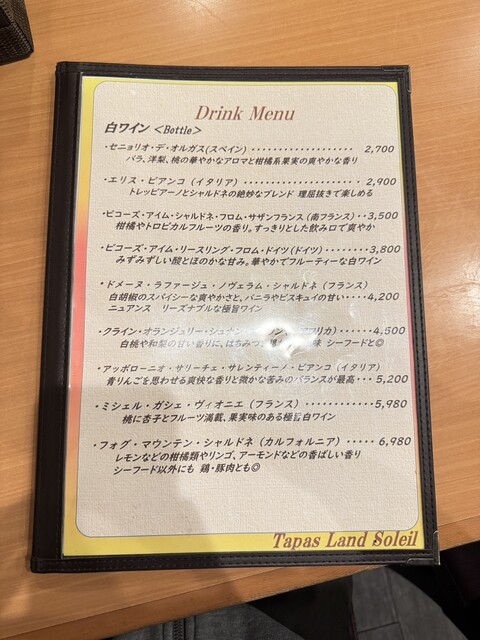 Drink Menu
白ワイン <Bottle>
・セニョリオ・デ・オルガス(スペイン) ・・・・・・・・・・・・・・・・・・・ 2,700
バラ、洋梨、桃の華やかなアロマと柑橘系果実の爽やかな香り
・エリス・ビアンコ (イタリア) ・・・・・・・・・・・・・・・・・・・・・・ 2,900
トレッビアーノとシャルドネの絶妙なブレンド 理屈抜きで楽しめる
・ビコーズ・アイム・シャルドネ・フロム・サザンフランス (南フランス) ・・3,500
柑橘やトロピカルフルーツの香り。すっきりとした飲み口で爽やか
・ビコーズ・アイム・リースリング・フロム・ドイツ(ドイツ) ・・・・・・・・3,800
みずみずしい酸とほのかな甘み。華やかでフルーティーな白ワイン
・ドメーヌ・ラファージュ・ノヴェラム・シャルドネ (フランス)
白胡椒のスパイシーな爽やかさと、バニラやビスキュイの甘い・・・・4,200
ニュアンス リーズナブルな極旨ワイン
・クライン・オランジュリー・シュナン・ フリカ)・・・・・・4,500
白桃や和梨の甘い香りに、はちみつ 味 シーフードと◎
・アッポローニオ・サリーチェ・サレンティーノ・ビアンコ (イタリア)
青りんごを思わせる爽快な香りと微かな苦みのバランスが最高・・・5,200
・ミシェル・ガシェ・ヴィオニエ (フランス) ・・・・・・・・・・・5,980
桃に杏子とフルーツ満載、果実味のある極旨白ワイン
・フォグ・マウンテン・シャルドネ (カルフォルニア) ・・・・・ 6,980
レモンなどの柑橘類やリンゴ、アーモンドなどの香ばしい香り
シーフード以外にも 鶏・豚肉とも◎
Tapas Land Soleil